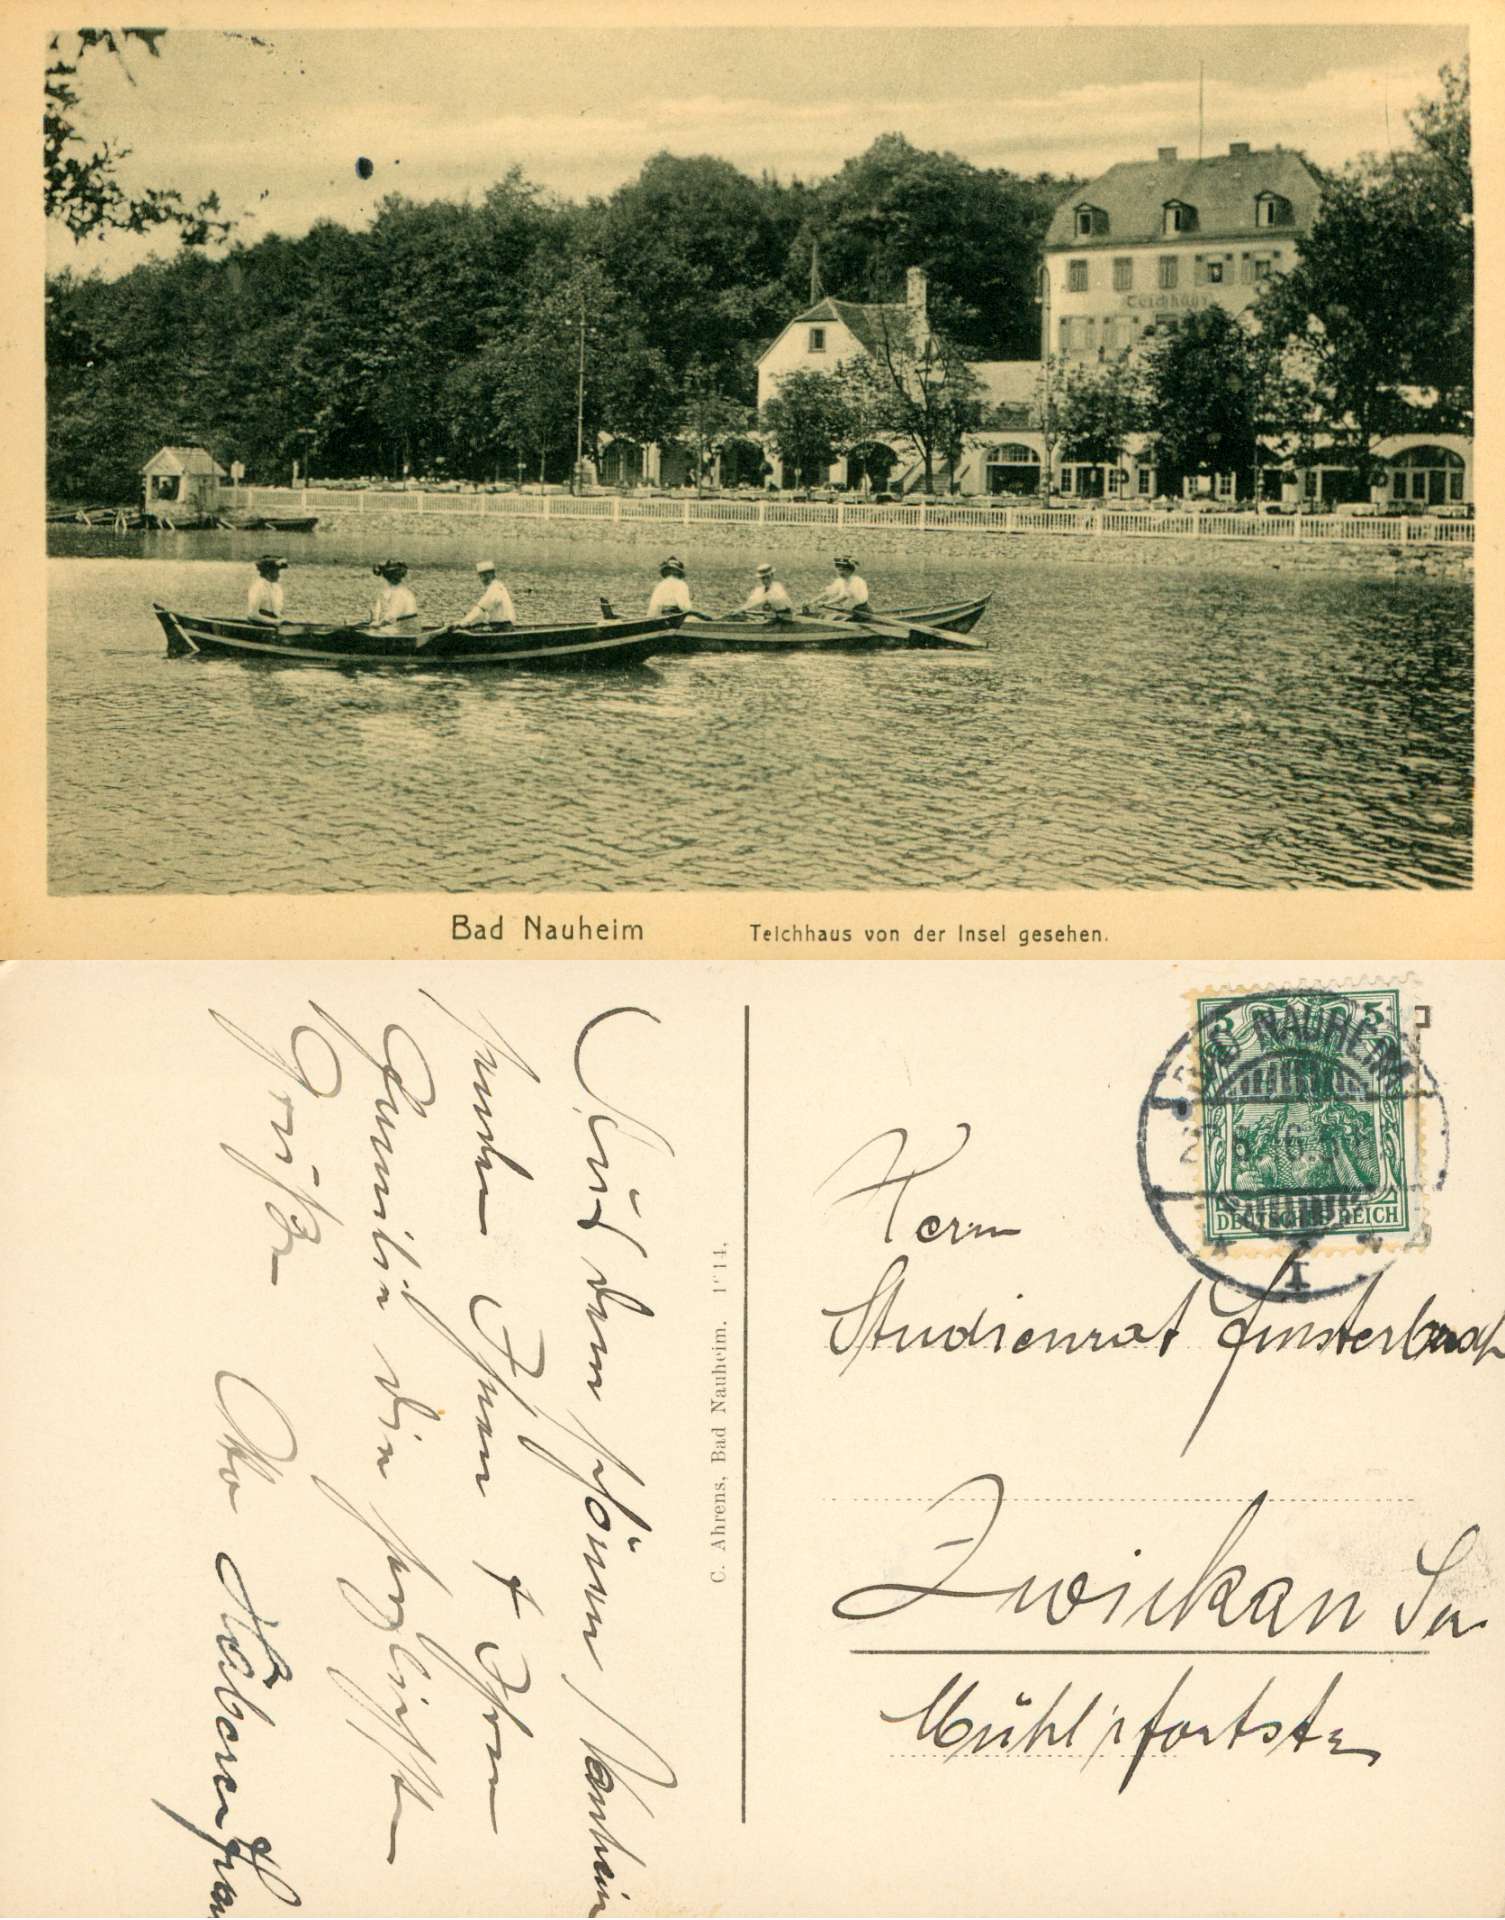 Teichhaus
Bad Nauheim Teichhaus von der Insel gesehen.
Aus dem schönen Nauheim
senden Ihnen & Ihrer
Familie die herzlichsten
Grüße
Otto
C. Ahrens, Bad Nauheim.
5 5
BAD NAUHEIM
DEUTSCHES REICH
I
Herrn
Studienrat Finsterbusch
Zwickau Sa
Mühlpfortstr